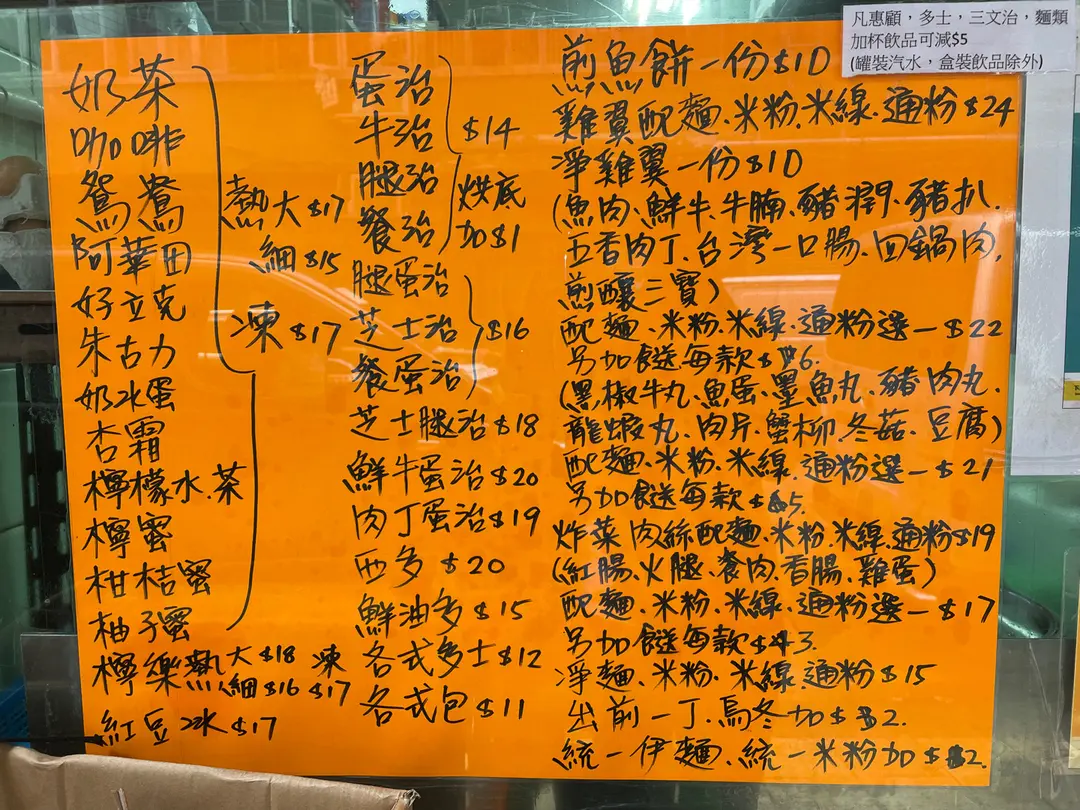 凡惠顧，多士，三文治，麵類
加杯飲品可減$5
(罐裝汽水，盒裝飲品除外)
奶茶
咖啡
鴛鴦
阿華田
好立克
朱古力
奶水蛋
杏霜
檸檬水.茶
檸蜜
柑桔蜜
柚子蜜
熱大$17
細$15
凍$17
檸樂熱大$18 凍
細$16 $17
紅豆冰$17
蛋治
牛治
腿治
餐治
$14
烘底
加$1
腿蛋治
芝士治
餐蛋治
$16
芝士腿治$18
鮮牛蛋治$20
肉丁蛋治$19
西多$20
鮮油多$15
各式多士$12
各式包$11
煎魚餅一份$10
雞翼配麵、米粉.米線.通粉$24
淨雞翼一份$10
(魚肉、鮮牛、牛腩、豬潤、豬扒、
五香肉丁、台灣一口腸、回鍋肉、
煎釀三寶)
配麵、米粉、米線、通粉選一$22
另加餸每款$6.
(黑椒牛丸、魚蛋、墨魚丸、豬肉丸、
龍蝦丸、肉片、蟹柳、冬菇、豆腐)
配麵、米粉、米線、通粉選一$21
另加餸每款$5.
炸菜肉絲配麵、米粉、米線、通粉$19
(紅腸、火腿、餐肉、香腸、雞蛋)
配麵、米粉、米線、通粉選一$17
另加餸每款$3.
淨麵、米粉、米線、通粉$15
出前一丁、烏冬加$2.
統一伊麵、統一米粉加$2.